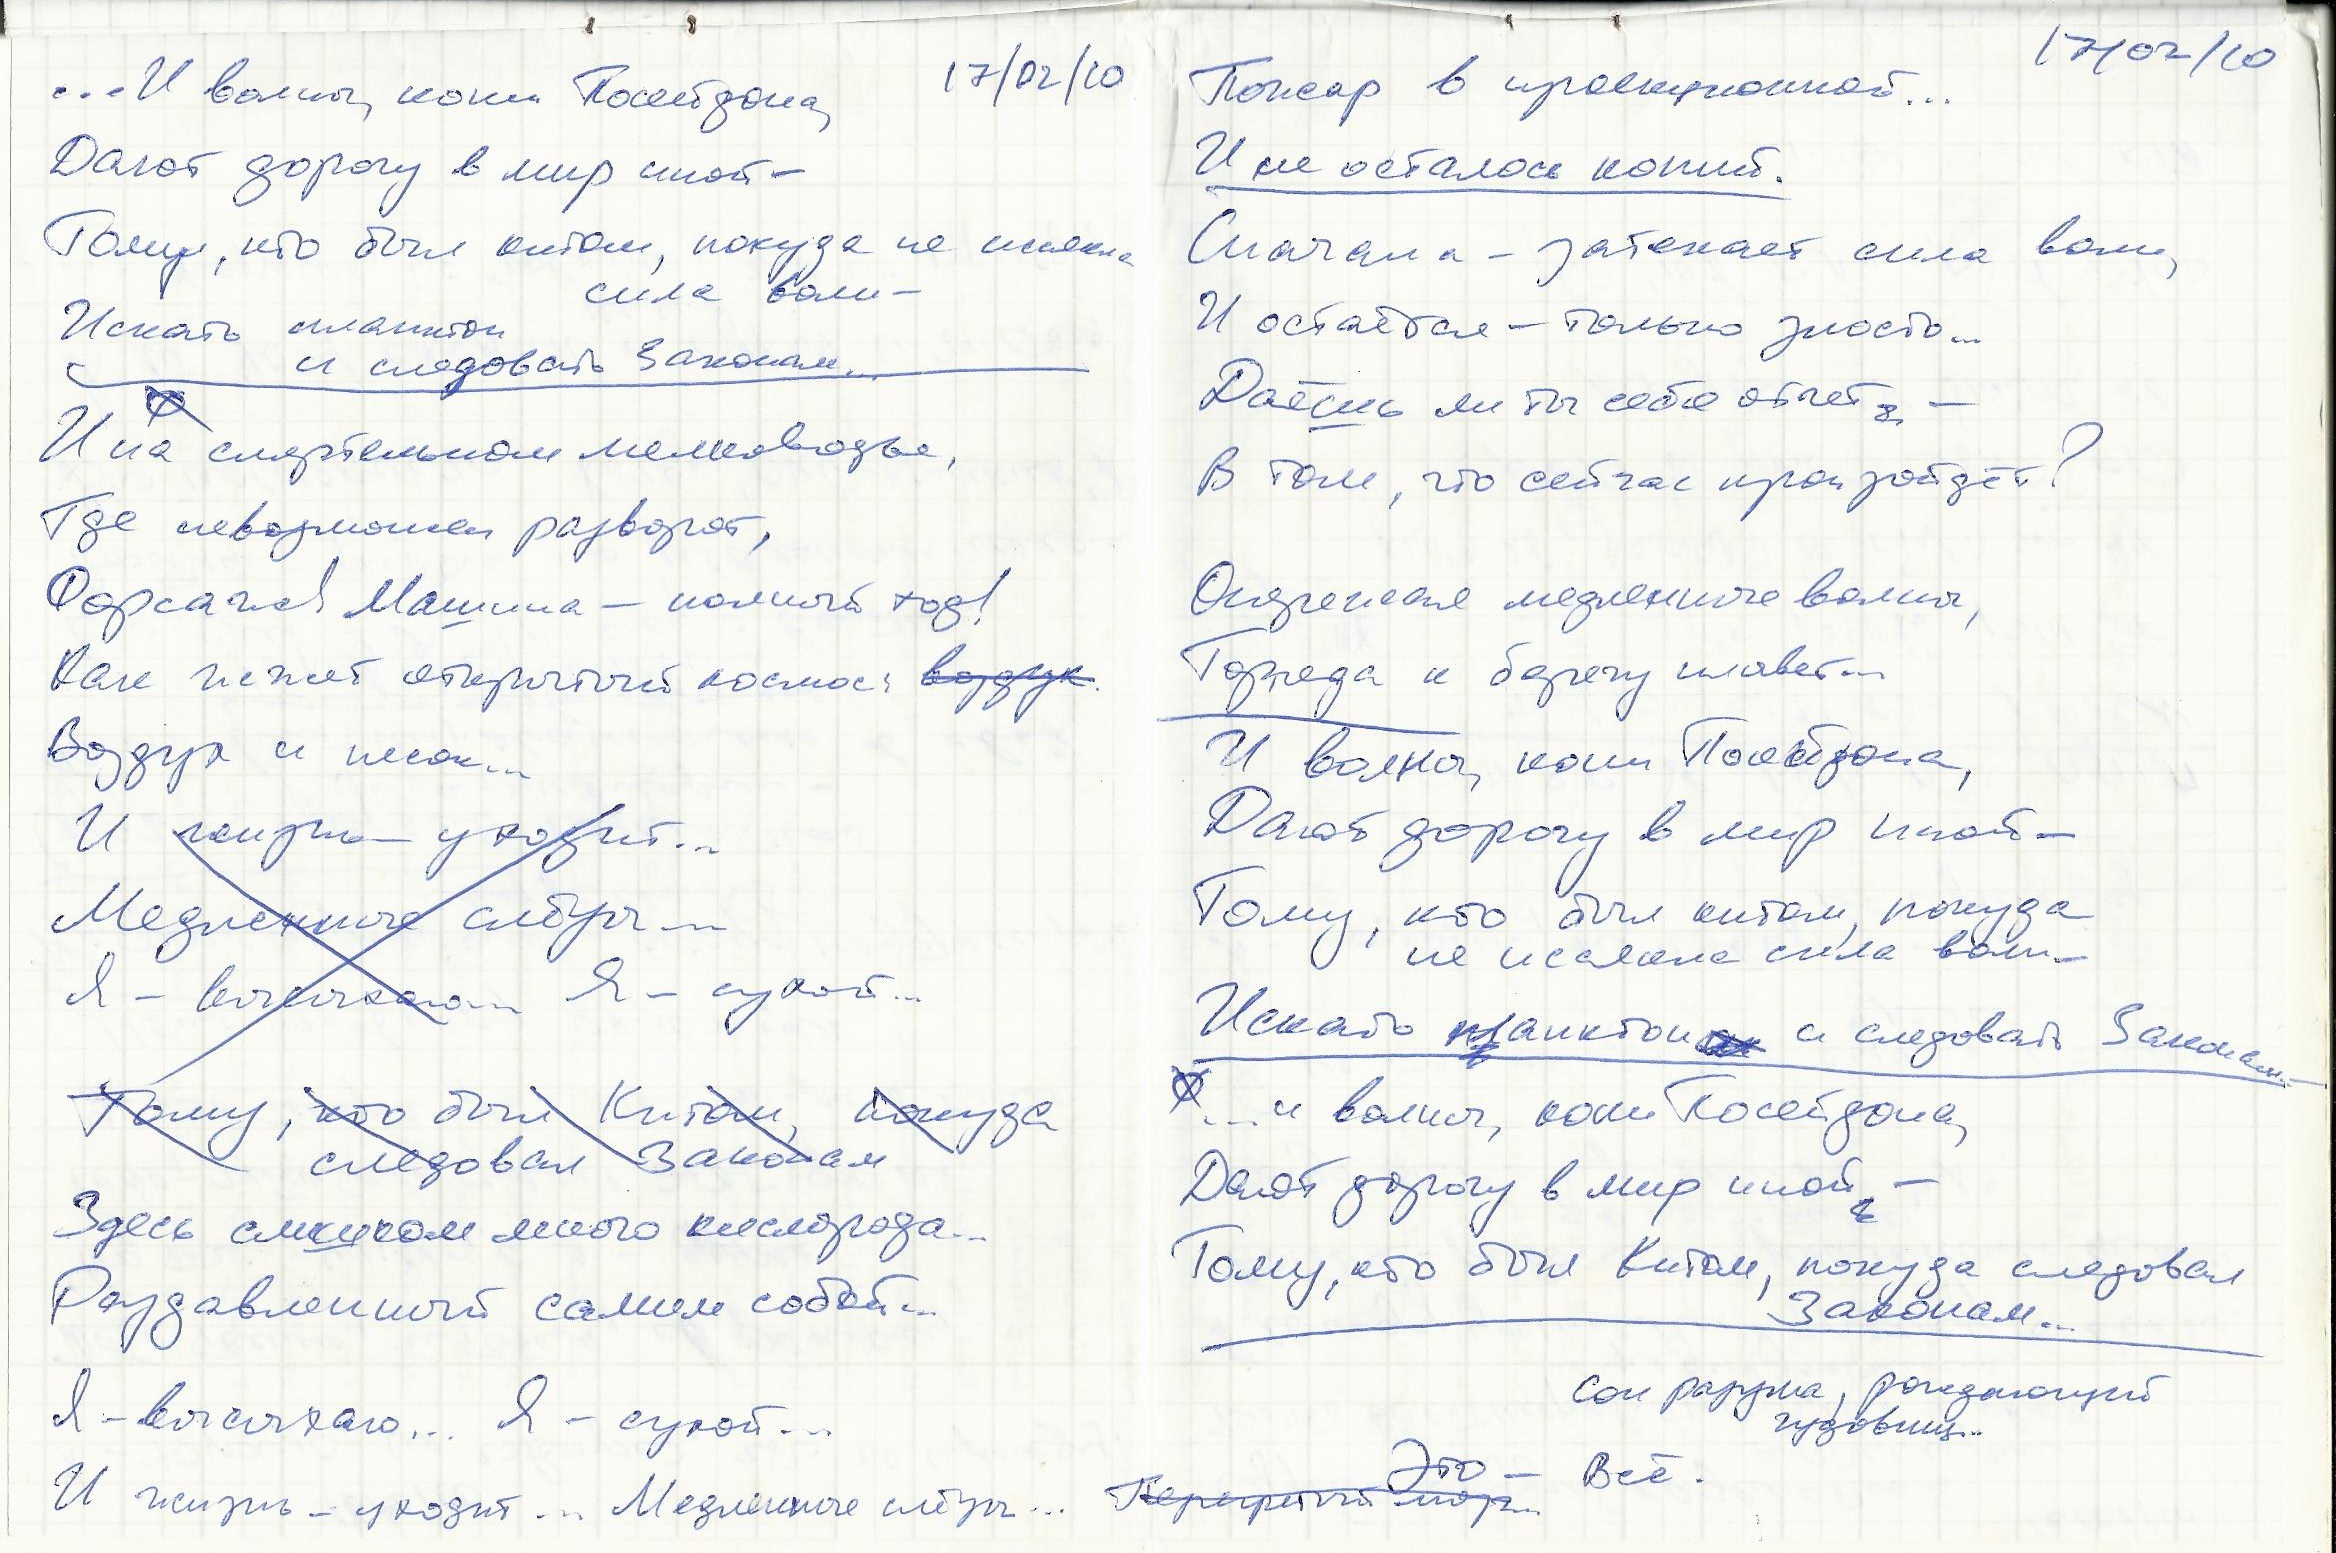 17/02/10
...И волны, кони Посейдона,
Дают дорогу в мир иной –
Тому, кто был китом, покуда не иссякла
сила воли –
Искать планктон
и следовать Законам...
И на смертельном мелководье,
Где невозможен разворот,
Форсаж! Машина – полный ход!
Как жжёт открытый космос: воздух
Воздух и песок...
И жизнь – уходит...
Медленные
Я – высыхаю... Я – сухой...
Тому, кто был Китом, покуда
следовал Законам
Здесь слишком много кислорода...
Раздавленный самим собой...
Я – высыхаю... Я – сухой...
И жизнь – уходит... Медленные
17/02/10
Пожар в проекционной...
И не осталось копий.
Сначала – затекает сила воли,
И остаётся – только злость...
Даёшь ли ты себе отчет, –
В том, что сейчас произойдёт?
Опережая медленные волны,
Торпеда к берегу плывет...
И волны, кони Посейдона,
Дают дорогу в мир иной –
Тому, кто был китом, покуда
не иссякла сила воли –
Искать планктон и следовать Законам...
...и волны, кони Посейдона,
Дают дорогу в мир иной, –
Тому, кто был Китом, покуда следовал
Законам...
Сон разума, рождающий
чудовищ...
Это – Всё.